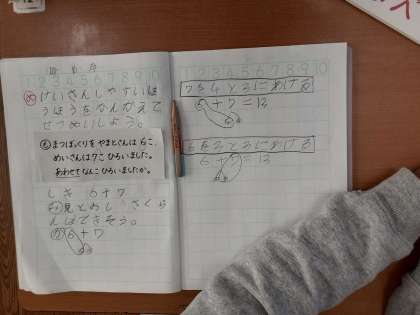 1 2 3 4 5 6 7 8 9 10
め けいさんしやすいほ
うほうをかんがえて
せつめいしよう。
も まつぼっくりを やまとさんは 6こ、
めいさんは 7こ ひろいました。
あわせて なんこ ひろいましたか。
しき 6+7
見とおし さくら
んぼできそう。
6+7
1 2 3 4 5 6 7 8 9 10
7を4と3にわける
6+7=13
6を3と3にわける
6+7=13